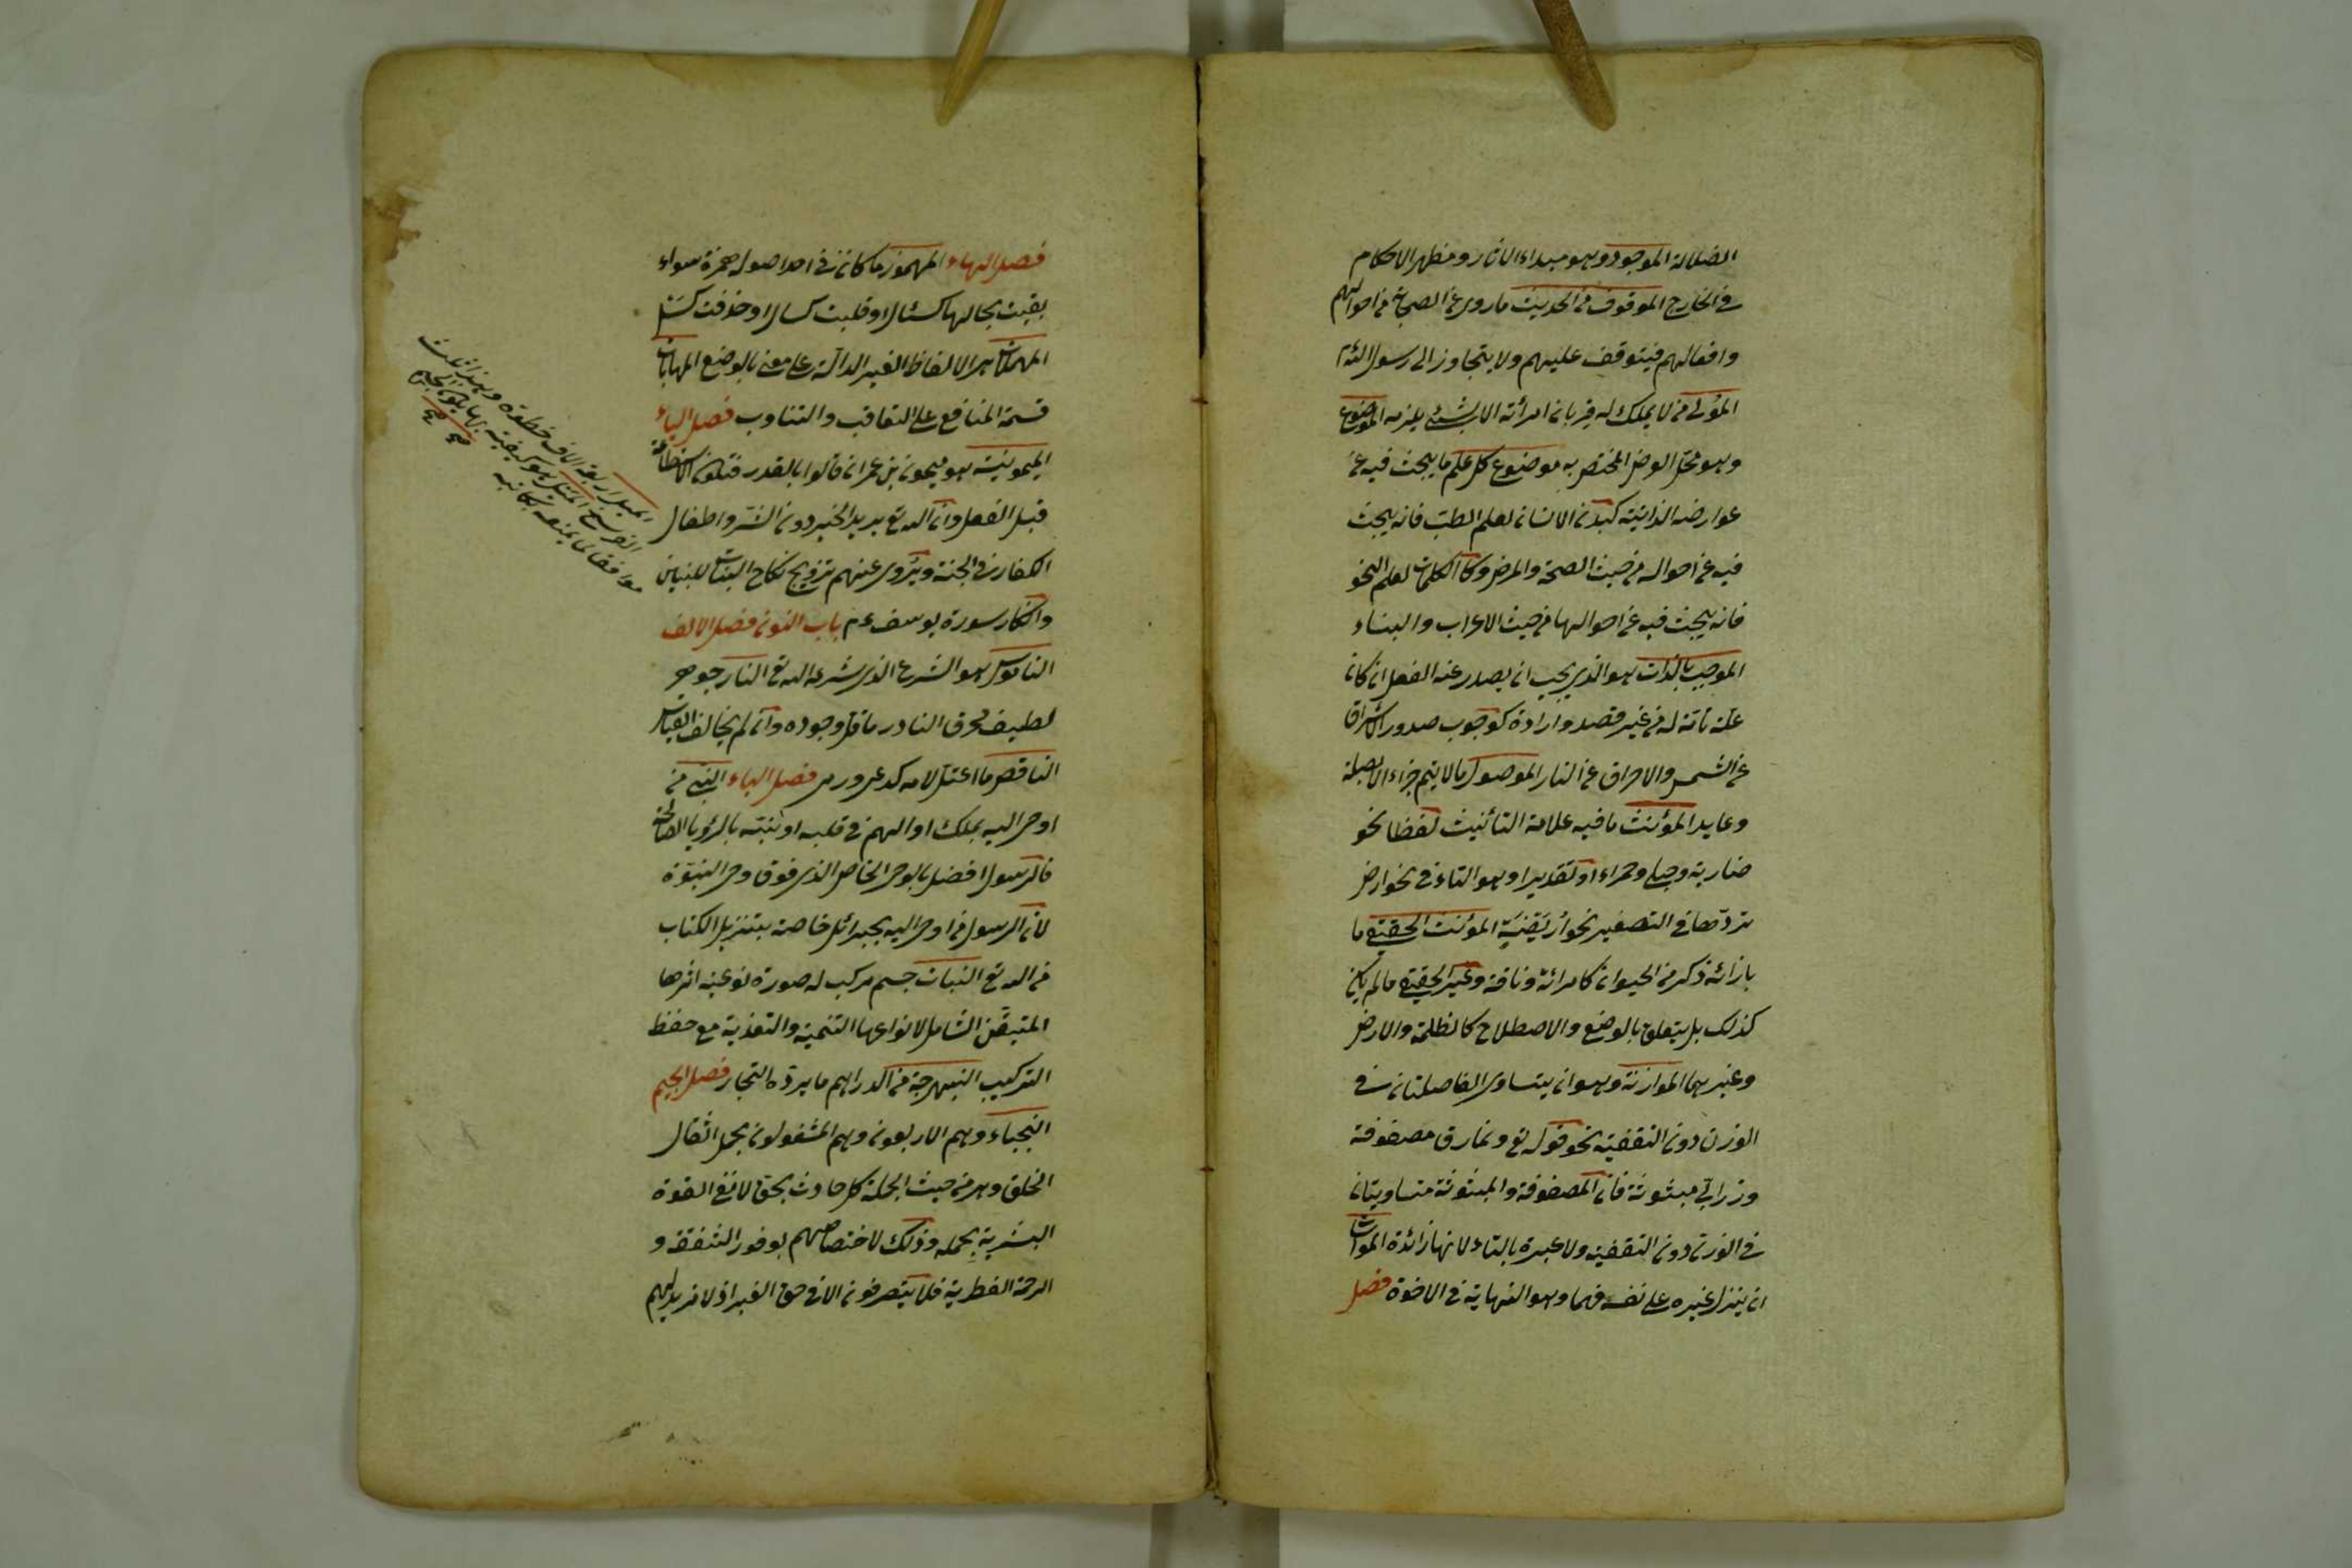 الضلالة الموجود وهو مبداء الاثار ومظهر الاحكام
في الخارج الموقوف من الحديث ما روى عن الصحابة من احوالهم
وافعالهم فيتوقف عليهم ولا يتجاوز الى رسول الله
المؤلى من لا يملك له قربان امرأته الا بشئ يلزمه الموضوع
وهو محل العرض المختص به موضوع كل علم ما يبحث فيه عن
عوارضه الذاتية كبدن الانسان لعلم الطب فانه يبحث
فيه عن احواله من حيث الصحة والمرض وكالكلمات لعلم النحو
فانه يبحث فيه عن احوالها من حيث الاعراب والبناء
الموجب بالذات هو الذي يجب ان يصدر عنه الفعل ان كان
علة تامة له من غير قصد وارادة كوجوب صدور الاشراق
عن الشمس والاحراق عن النار الموصول ما لا يتم جزاء الا بصلة
وعايد المؤنث ما فيه علامة التأنيث لفظا نحو
ضاربة وحبلى وحمراء او تقديرا وهو التاء في نحو ارض
تردها في التصغير نحو اريضة المؤنث الحقيقي ما
بازائه ذكر من الحيوان كامرائة وناقة وغير الحقيقي ما لم يكن
كذلك بل يتعلق بالوضع والاصطلاح كالظلمة والارض
وغيرهما الموازنة وهو ان يتساوى الفاصلتان في
الوزن دون التقفية نحو قوله تع ونمارق مصفوفة
وزرابي مبثوثة فان المصفوفة والمبثوثة متساويتان
في الوزن دون التقفية ولا عبرة بالتاء لانها زائدة المواساة
ان ينزل غيره على نفسه وهو النهاية في الاخوة فصل
فصل الهاء المهموز ما كان في احد اصوله همزة سواء
بقيت بحالها كسئال او قلبت كسال او حذفت كسل
المهملات هي الالفاظ الغير الدالة على معنى بالوضع المهايات
قسمة المنافع على التعاقب والتناوب فصل الياء
الميمونية هو ميمون بن عمران قالوا بالقدر فتكون الاستطاعة
قبل الفعل وان الله تع يريد الخير دون الشر واطفال
الكفار في الجنة ويروى عنهم تزويج نكاح البنات للبنين
وانكار سورة يوسف ء م باب النون فصل الالف
الناموس هو الشرع الذي شرعه الله تع النار جوهر
لطيف محرق النادر ما قل وجوده وان لم يخالف القياس
الناقص ما اعتل لامه كدعى ورمى فصل الباء النبي من
اوحى اليه بملك او الهم في قلبه او نبه بالرؤيا الصالحة
فالرسول افضل بالوحى الخاص الذي فوق وحى النبوة
لان الرسول من اوحى اليه بجبرائل خاصة بتنزيل الكتاب
من الله تع النبات جسم مركب له صورة نوعية اثرها
المتيقن الشامل لانواعها التنمية والتغذية مع حفظ
التركيب النبهرجة من الدراهم ما يرده التجار فصل الجيم
النجباء وهم الاربعون وهم المشغولون بحمل اثقال
الخلق وهي من حيث الجملة كل حادث بحق لا تفى القوة
البشرية بحمله وذلك لاختصاصهم بوفور الشفقة و
الرحمة الفطرية فلا يتصرفون الا في حق الغير اذ لا مزيد لهم
الميل اربعة الاف خطوة
الميل هو كيفية بها يكون الجسم
موافقا لما يمنعه